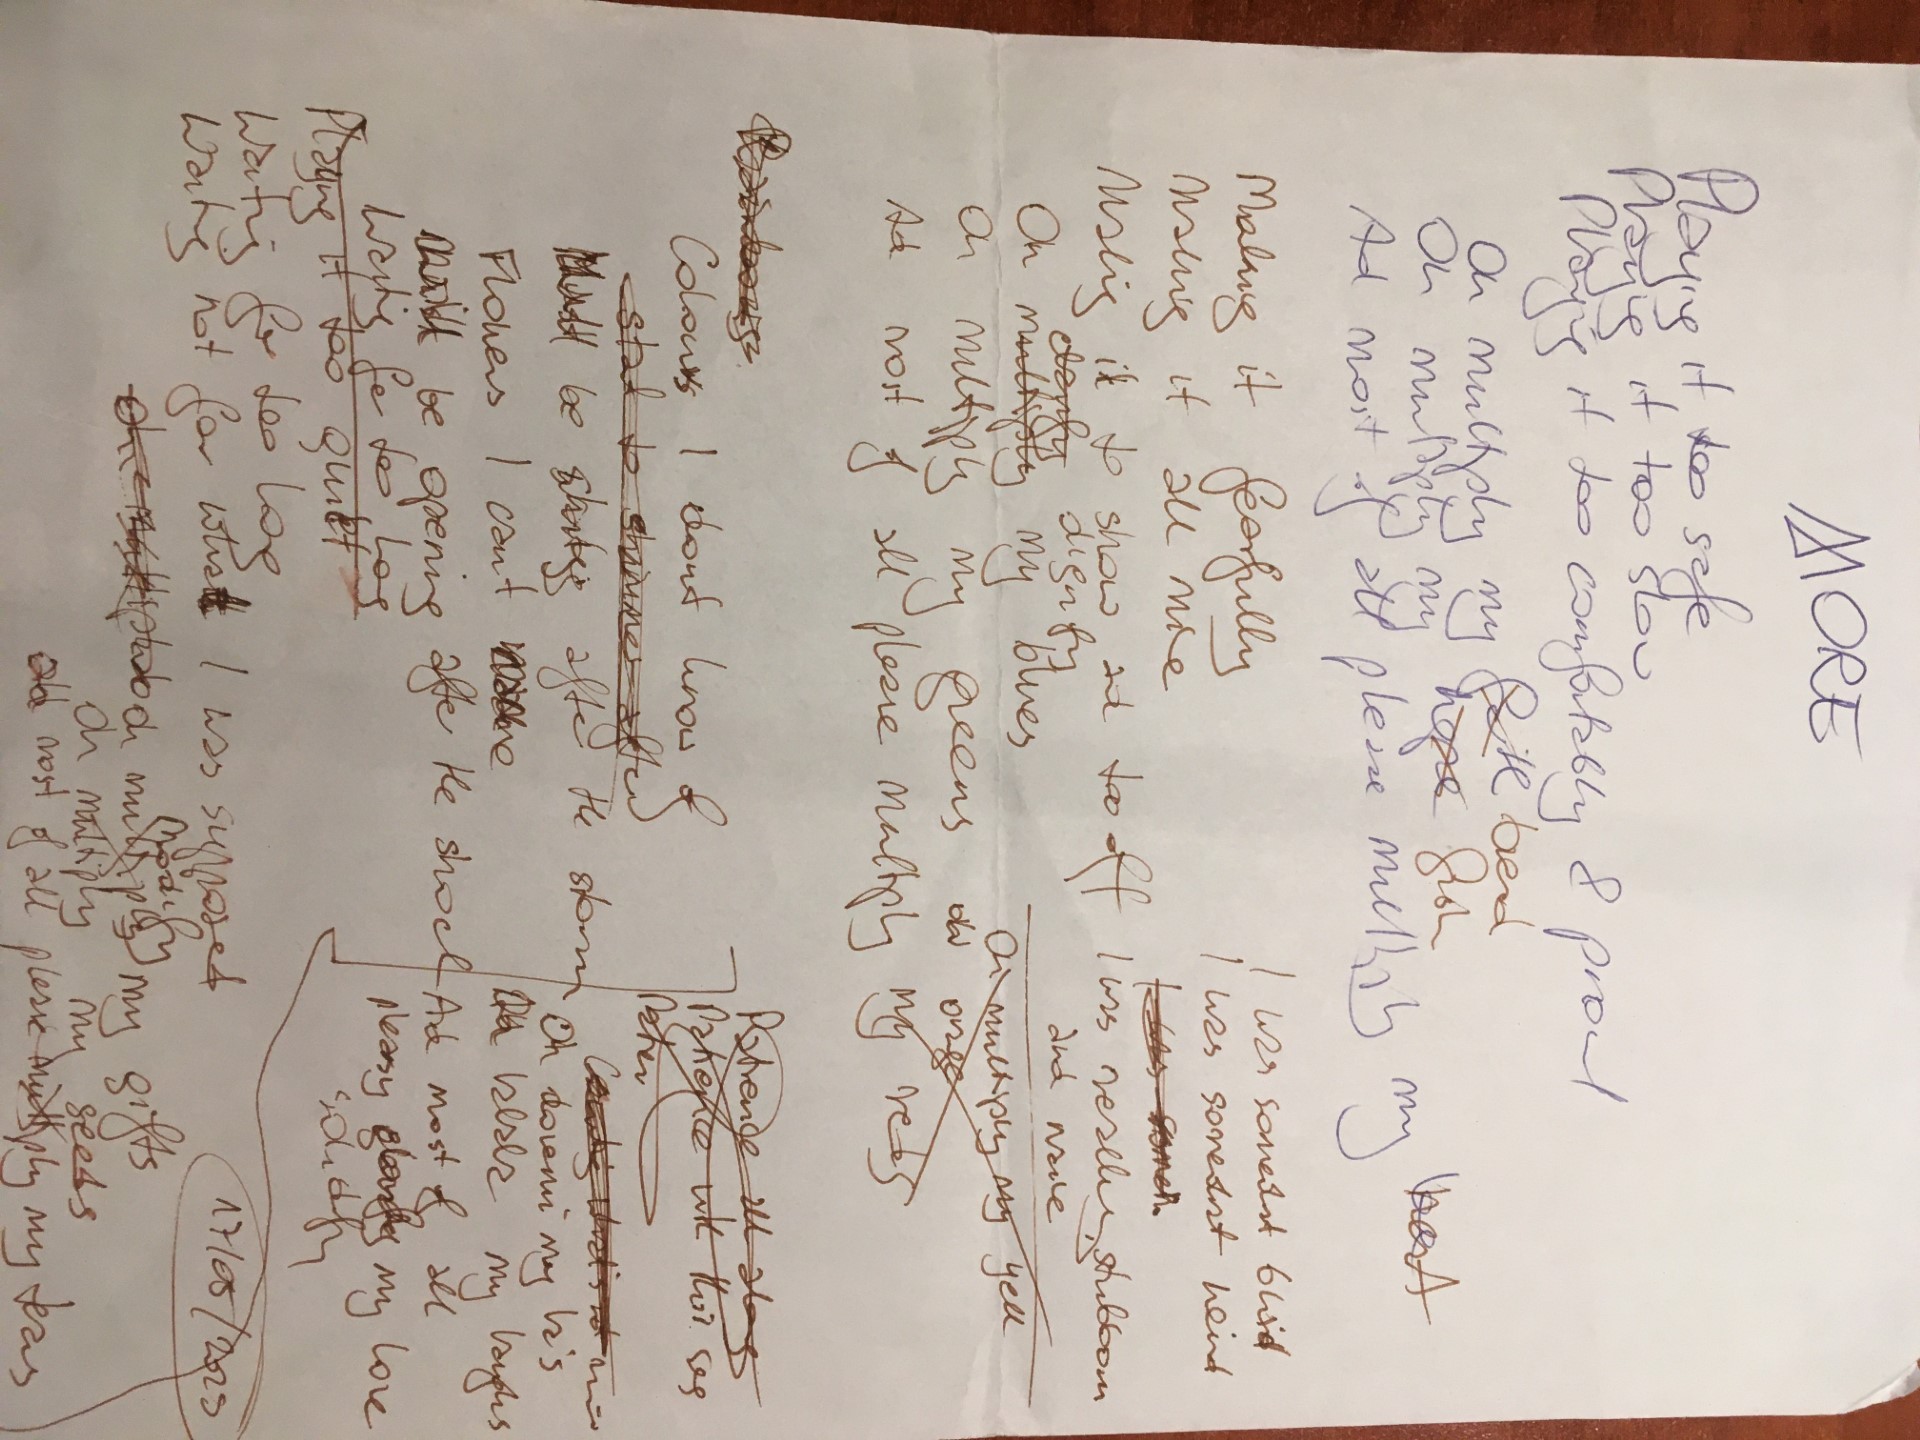 MORE
Playing it too safe
Playing it too slow
Playing it too comfortably & proud
Oh multiply my faith bread
Oh multiply my hope fish
And most of all please multiply my heart
Making it fearfully
Making it all mine
Making it to show and to off
Oh multiply dignify my blues
Oh multiply my greens
And most of all please multiply my reds
I was somewhat blind
I was somewhat
I was really stubborn
and naive
Oh multiply my yell
Colours I dont know of
start to shimmer after
Must be shining after the storm
Flowers I cant name
Must be opening after the shock
Waiting for too long
Playing it too quiet
Waiting for too long
Waiting not for what I was supposed
Oh multiply modify my gifts
Oh multiply my seeds
and most of all please multiply my tears
Patience all along
Patience will this say
Oh my
my laughs
And most of all
my love
solidify
17/05/2023